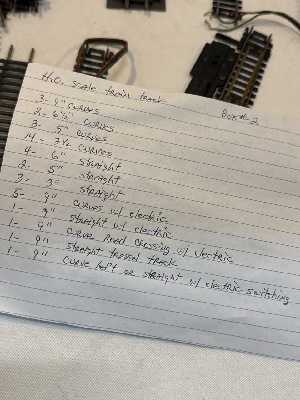 H.O. scale train track Box # 2
3- 9" curves
2- 6½" curves
3- 5" curves
14- 3½ curves
4- 6" straight
2- 5" straight
3- 3" straight
5- 9" curves w/ electric
1- 9" straight w/ electric
1- 9" curve Road crossing w/ electric
1- 9" straight track
1- 9" curve left or straight w/ electric switching